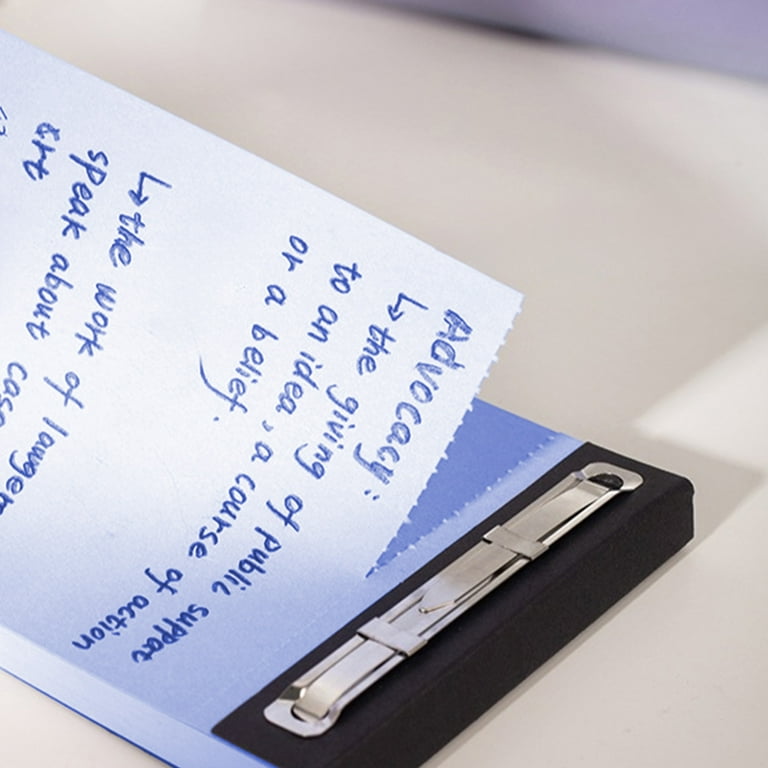 Advocacy:
↳ the giving of public support
to an idea, a course of action
or a belief.
↳ the work of lawyers
speak about